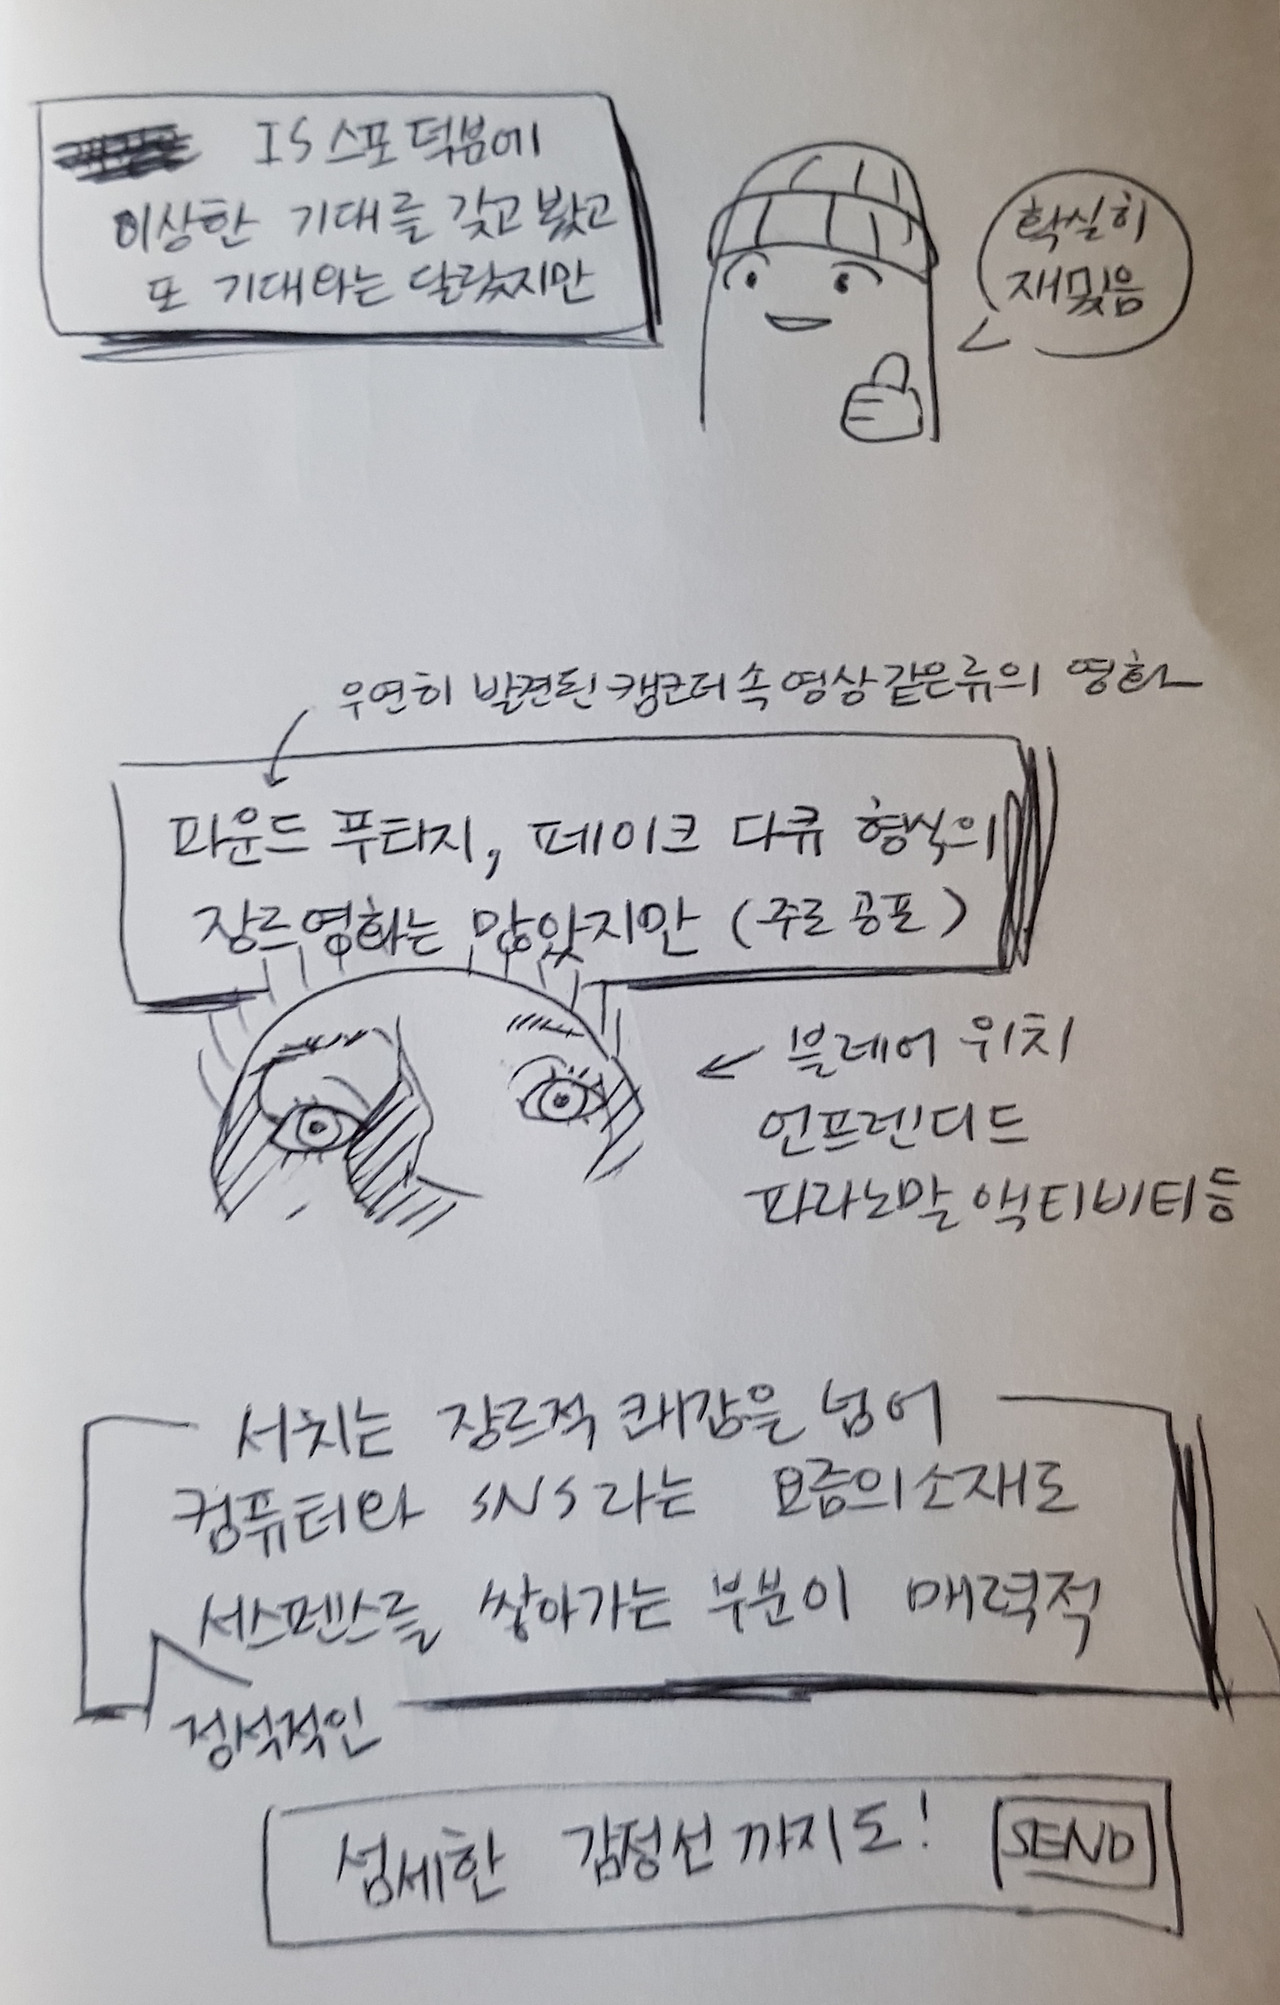 IS스포 덕분에
이상한 기대를 갖고 봤고
또 기대와는 달랐지만
확실히
재밌음
우연히 발견된 캠코더 속 영상 같은 류의 영화
파운드 푸타지, 페이크 다큐 형식의
장르영화는 많았지만 (주로 공포)
블레어 위치
언프렌디드
파라노말 액티비티 등
서치는 장르적 쾌감을 넘어
컴퓨터와 SNS라는 요즘의 소재로
서스펜스를 쌓아가는 부분이 매력적
정석적인
섬세한 감정선 까지도!
SEND